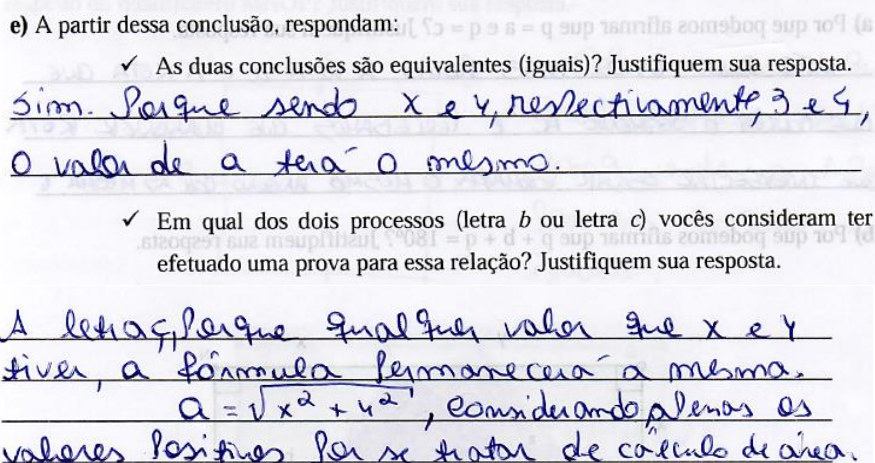 e) A partir dessa conclusão, respondam:
✓ As duas conclusões são equivalentes (iguais)? Justifiquem sua resposta.
Sim. Porque sendo x e y, respectivamente, 3 e 4,
O valor de a terá o mesmo.
✓ Em qual dos dois processos (letra b ou letra c) vocês consideram ter
efetuado uma prova para essa relação? Justifiquem sua resposta.
A letra c, Porque qualquer valor que x e y
tiver, a fórmula Permanecerá a mesma.
a = √x² + y², considerando apenas os
valores Positivos Por se tratar de cálculo de área.